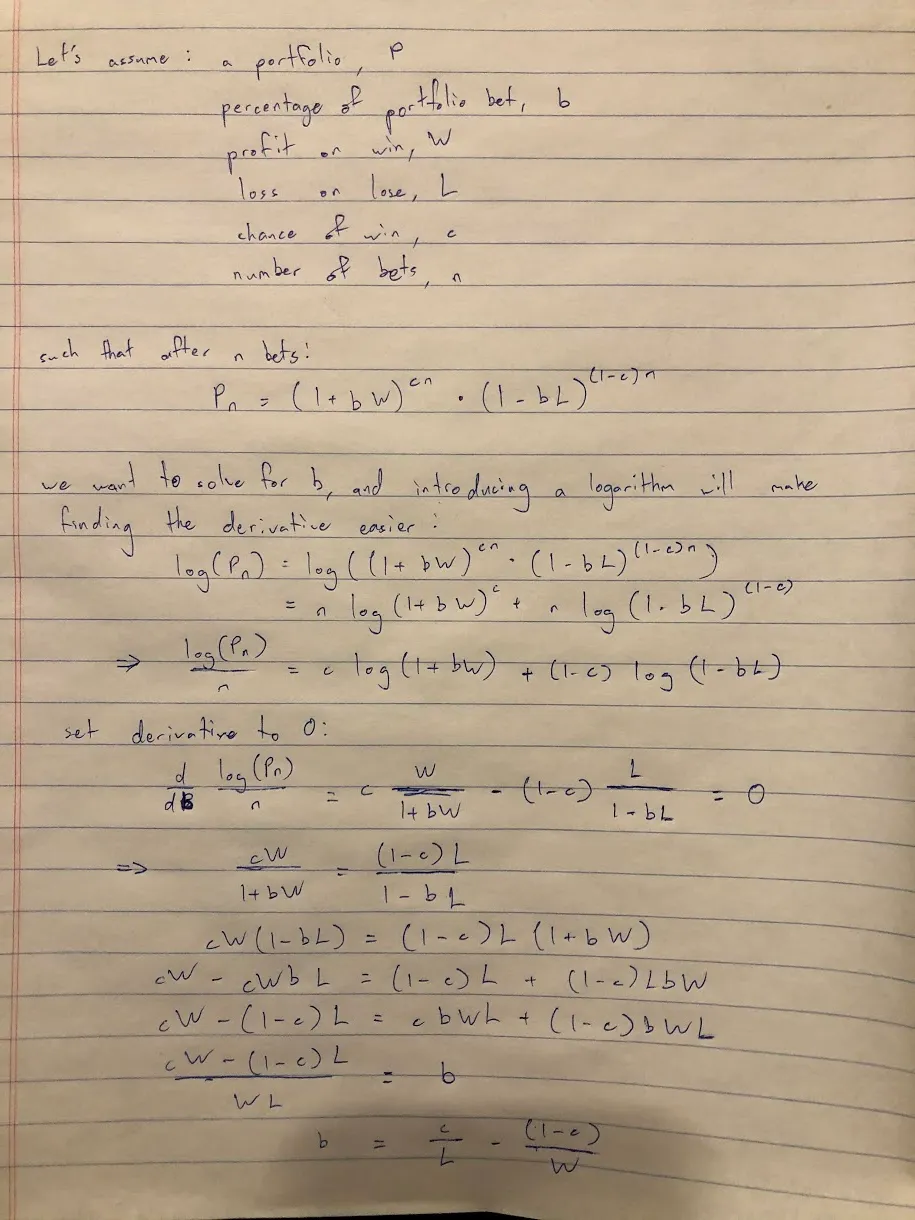 Let's assume : a portfolio, P
percentage of portfolio bet, b
profit on win, W
loss on lose, L
chance of win, c
number of bets, n
such that after n bets:
Pₙ = (1 + bW)^(cn) · (1 - bL)^((1-c)n)
we want to solve for b, and introducing a logarithm will make
finding the derivative easier :
log(Pₙ) = log((1 + bW)^(cn) · (1 - bL)^((1-c)n))
= n log(1+bW)^c + n log(1-bL)^((1-c))
⇒ log(Pₙ)/n = c log(1+bW) + (1-c) log(1-bL)
set derivative to 0:
d/db log(Pₙ)/n = c W/(1+bW) - (1-c) L/(1-bL) = 0
⇒ cW/(1+bW) = (1-c)L/(1-bL)
cW(1-bL) = (1-c)L(1+bW)
cW - cWbL = (1-c)L + (1-c)LbW
cW - (1-c)L = cbWL + (1-c)bWL
(cW - (1-c)L)/(WL) = b
b = c/L - (1-c)/W